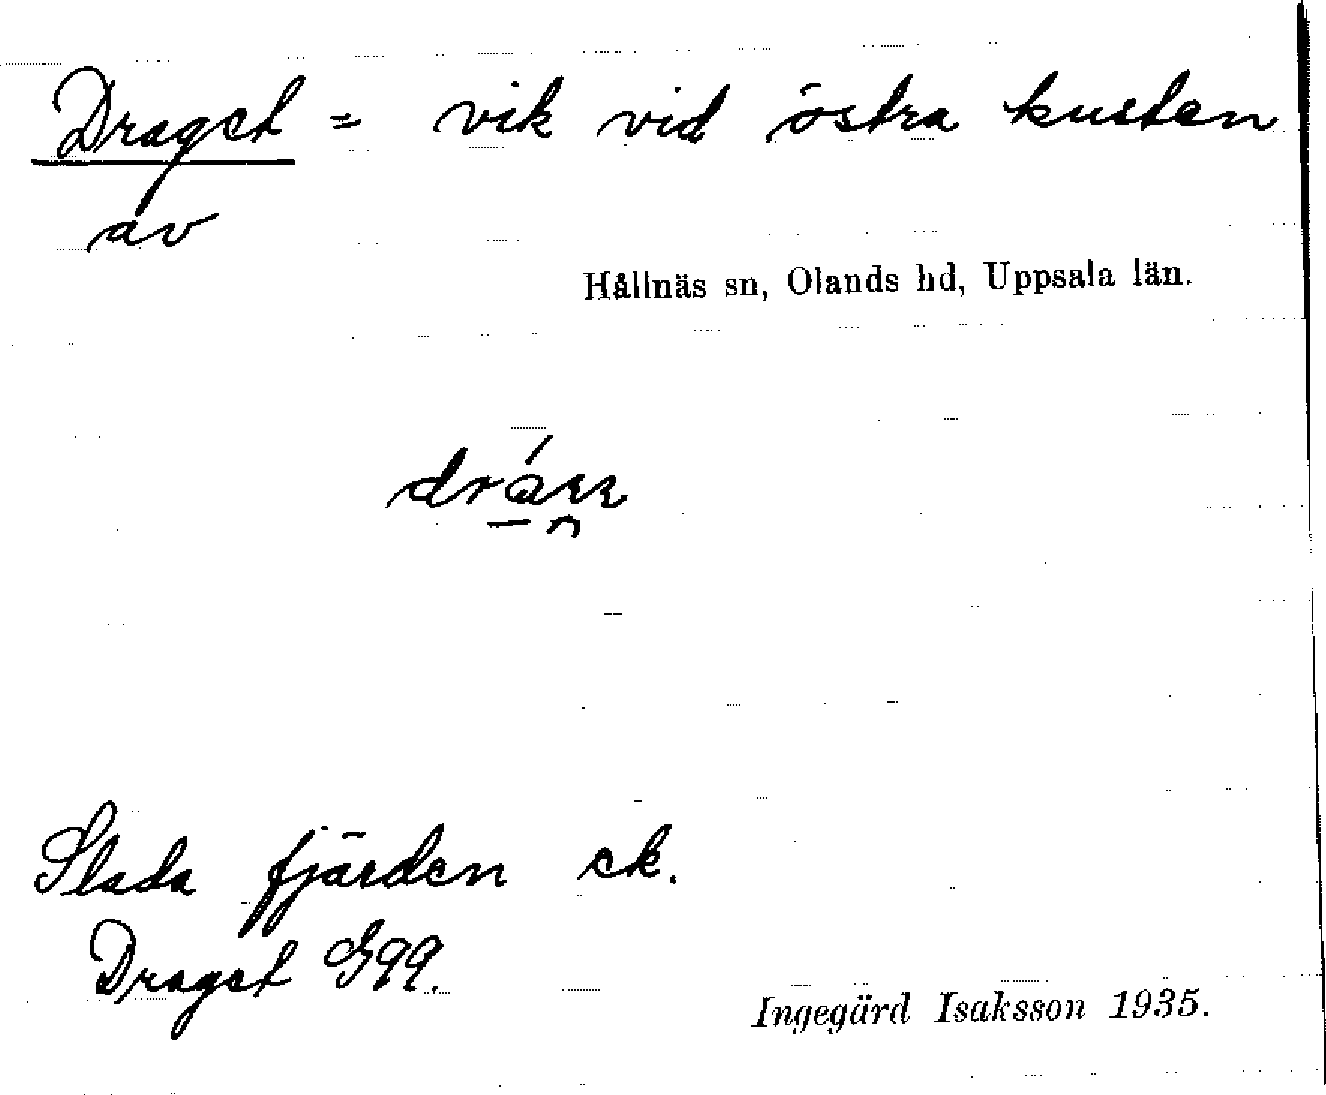 Draget = vik vid östra kusten
av
Hållnäs sn, Olands hd, Uppsala län.
Slada fjärden ek.
Draget G99.
Ingegärd Isaksson 1935.